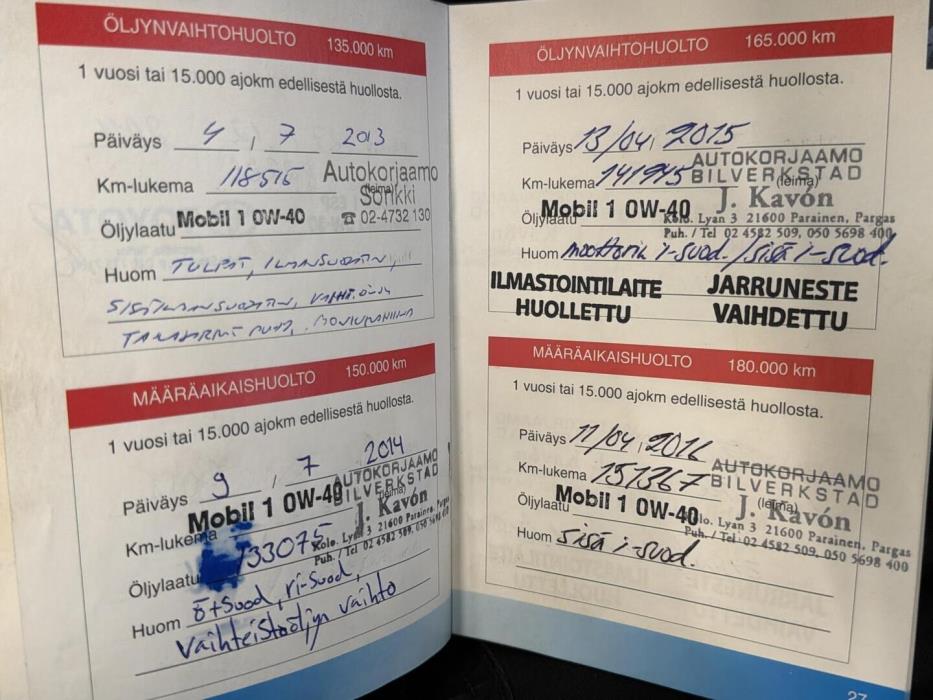 ÖLJYNVAIHTOHUOLTO 135.000 km
1 vuosi tai 15.000 ajokm edellisestä huollosta.
Päiväys 4 / 7 2013
Km-lukema 118515
Autokorjaamo
(leima)
Sorikki
Öljylaatu Mobil 1 0W-40
☎ 02-4732 130
Huom TULPAT, ILMANSUODATIN,
SISÄILMANSUODATIN, VAIHT. ÖLJY
MÄÄRÄAIKAISHUOLTO 150.000 km
1 vuosi tai 15.000 ajokm edellisestä huollosta.
Päiväys 9 / 7 2014
AUTOKORJAAMO
BILVERKSTAD
(leima)
Mobil 1 0W-40
J. Kavón
Km-lukema 133075
Kolo. Lyan 3 21600 Parainen, Pargas
Puh. / Tel 02 4582 509, 050 5698 400
Öljylaatu
Huom ö+suod, ri-suod,
vaihteistoöljyn vaihto
ÖLJYNVAIHTOHUOLTO 165.000 km
1 vuosi tai 15.000 ajokm edellisestä huollosta.
Päiväys 13/04, 2015
AUTOKORJAAMO
Km-lukema 141945
BILVERKSTAD
(leima)
J. Kavón
Öljylaatu Mobil 1 0W-40
Kolo. Lyan 3 21600 Parainen, Pargas
Puh. / Tel 02 4582 509, 050 5698 400
Huom moottorin i-suod. / sisä i-suod.
ILMASTOINTILAITE JARRUNESTE
HUOLLETTU VAIHDETTU
MÄÄRÄAIKAISHUOLTO 180.000 km
1 vuosi tai 15.000 ajokm edellisestä huollosta.
Päiväys 11/04, 2016
Km-lukema 151367
AUTOKORJAAMO
BILVERKSTAD
(leima)
J. Kavón
Öljylaatu Mobil 1 0W-40
Kolo. Lyan 3 21600 Parainen, Pargas
Puh. / Tel 02 4582 509, 050 5698 400
Huom sisä i-suod.
27